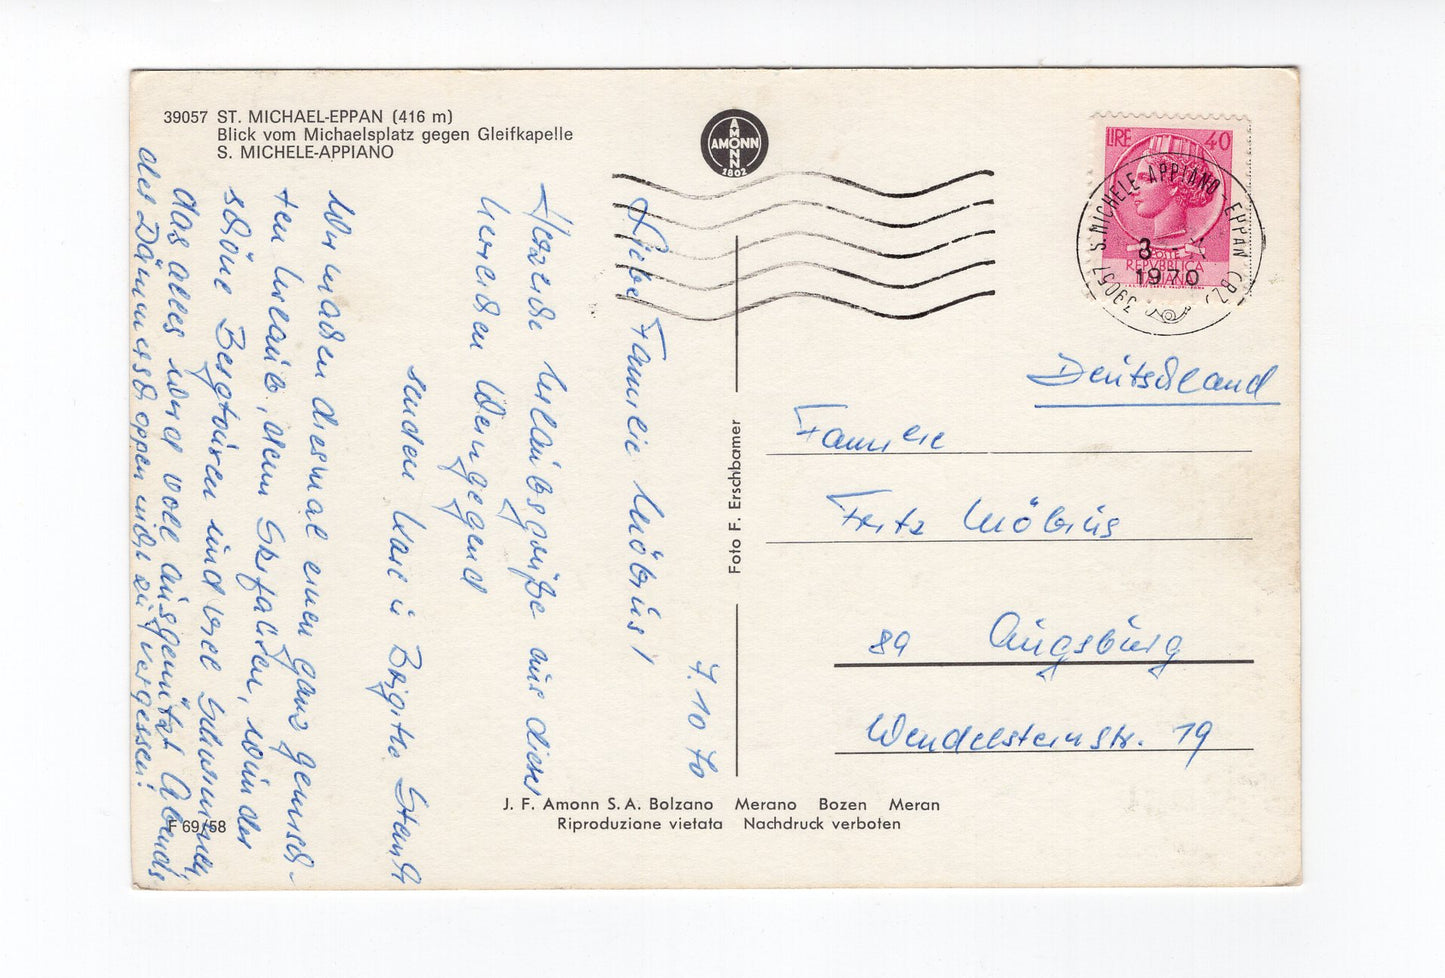 39057 ST. MICHAEL-EPPAN (416 m)
Blick vom Michaelsplatz gegen Gleifkapelle
S. MICHELE-APPIANO
AMONN
AMONN
1802
LIRE 40
POSTE
REPVBBLICA
ITALIANA
39057 S. MICHELE APPIANO - EPPAN (BZ)
3 X
1970
7.10.70
Liebe Familie Möbius!
Herzliche Urlaubsgrüße aus dieser
herrlichen Weingegend
senden Karl u Brigitte
Wir machen diesmal einen ganz gemisch-
ten Urlaub, denn Skifahren, wunder
schöne Bergtouren und viel Schwimmen,
das alles wird voll ausgenützt Abends
der Dämmerschoppen nicht zu vergessen!
Deutschland
Familie
Fritz Möbius
89 Augsburg
Wendelsteinstr. 19
Foto F. Erschbamer
J. F. Amonn S.A. Bolzano Merano Bozen Meran
Riproduzione vietata Nachdruck verboten
F 69/58